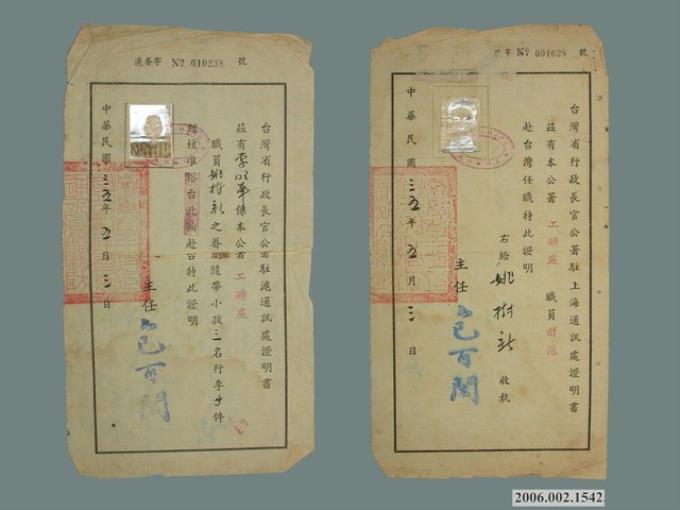 滬眷字 No 010238 號
台灣省行政長官公署駐滬通訊處證明書
茲有李 華係本公署工礦處
職員姚樹新之眷屬隨帶小孩三名行李 件
經核准 台北輪赴台特此證明
主任
中華民國三五年五月三日
字 No 001628 號
台灣省行政長官公署駐上海通訊處證明書
茲有本公署工礦處職員由滬
赴台灣任職特此證明
右給姚樹新收執
主任
中華民國三五年五月三日
2006.002.1542